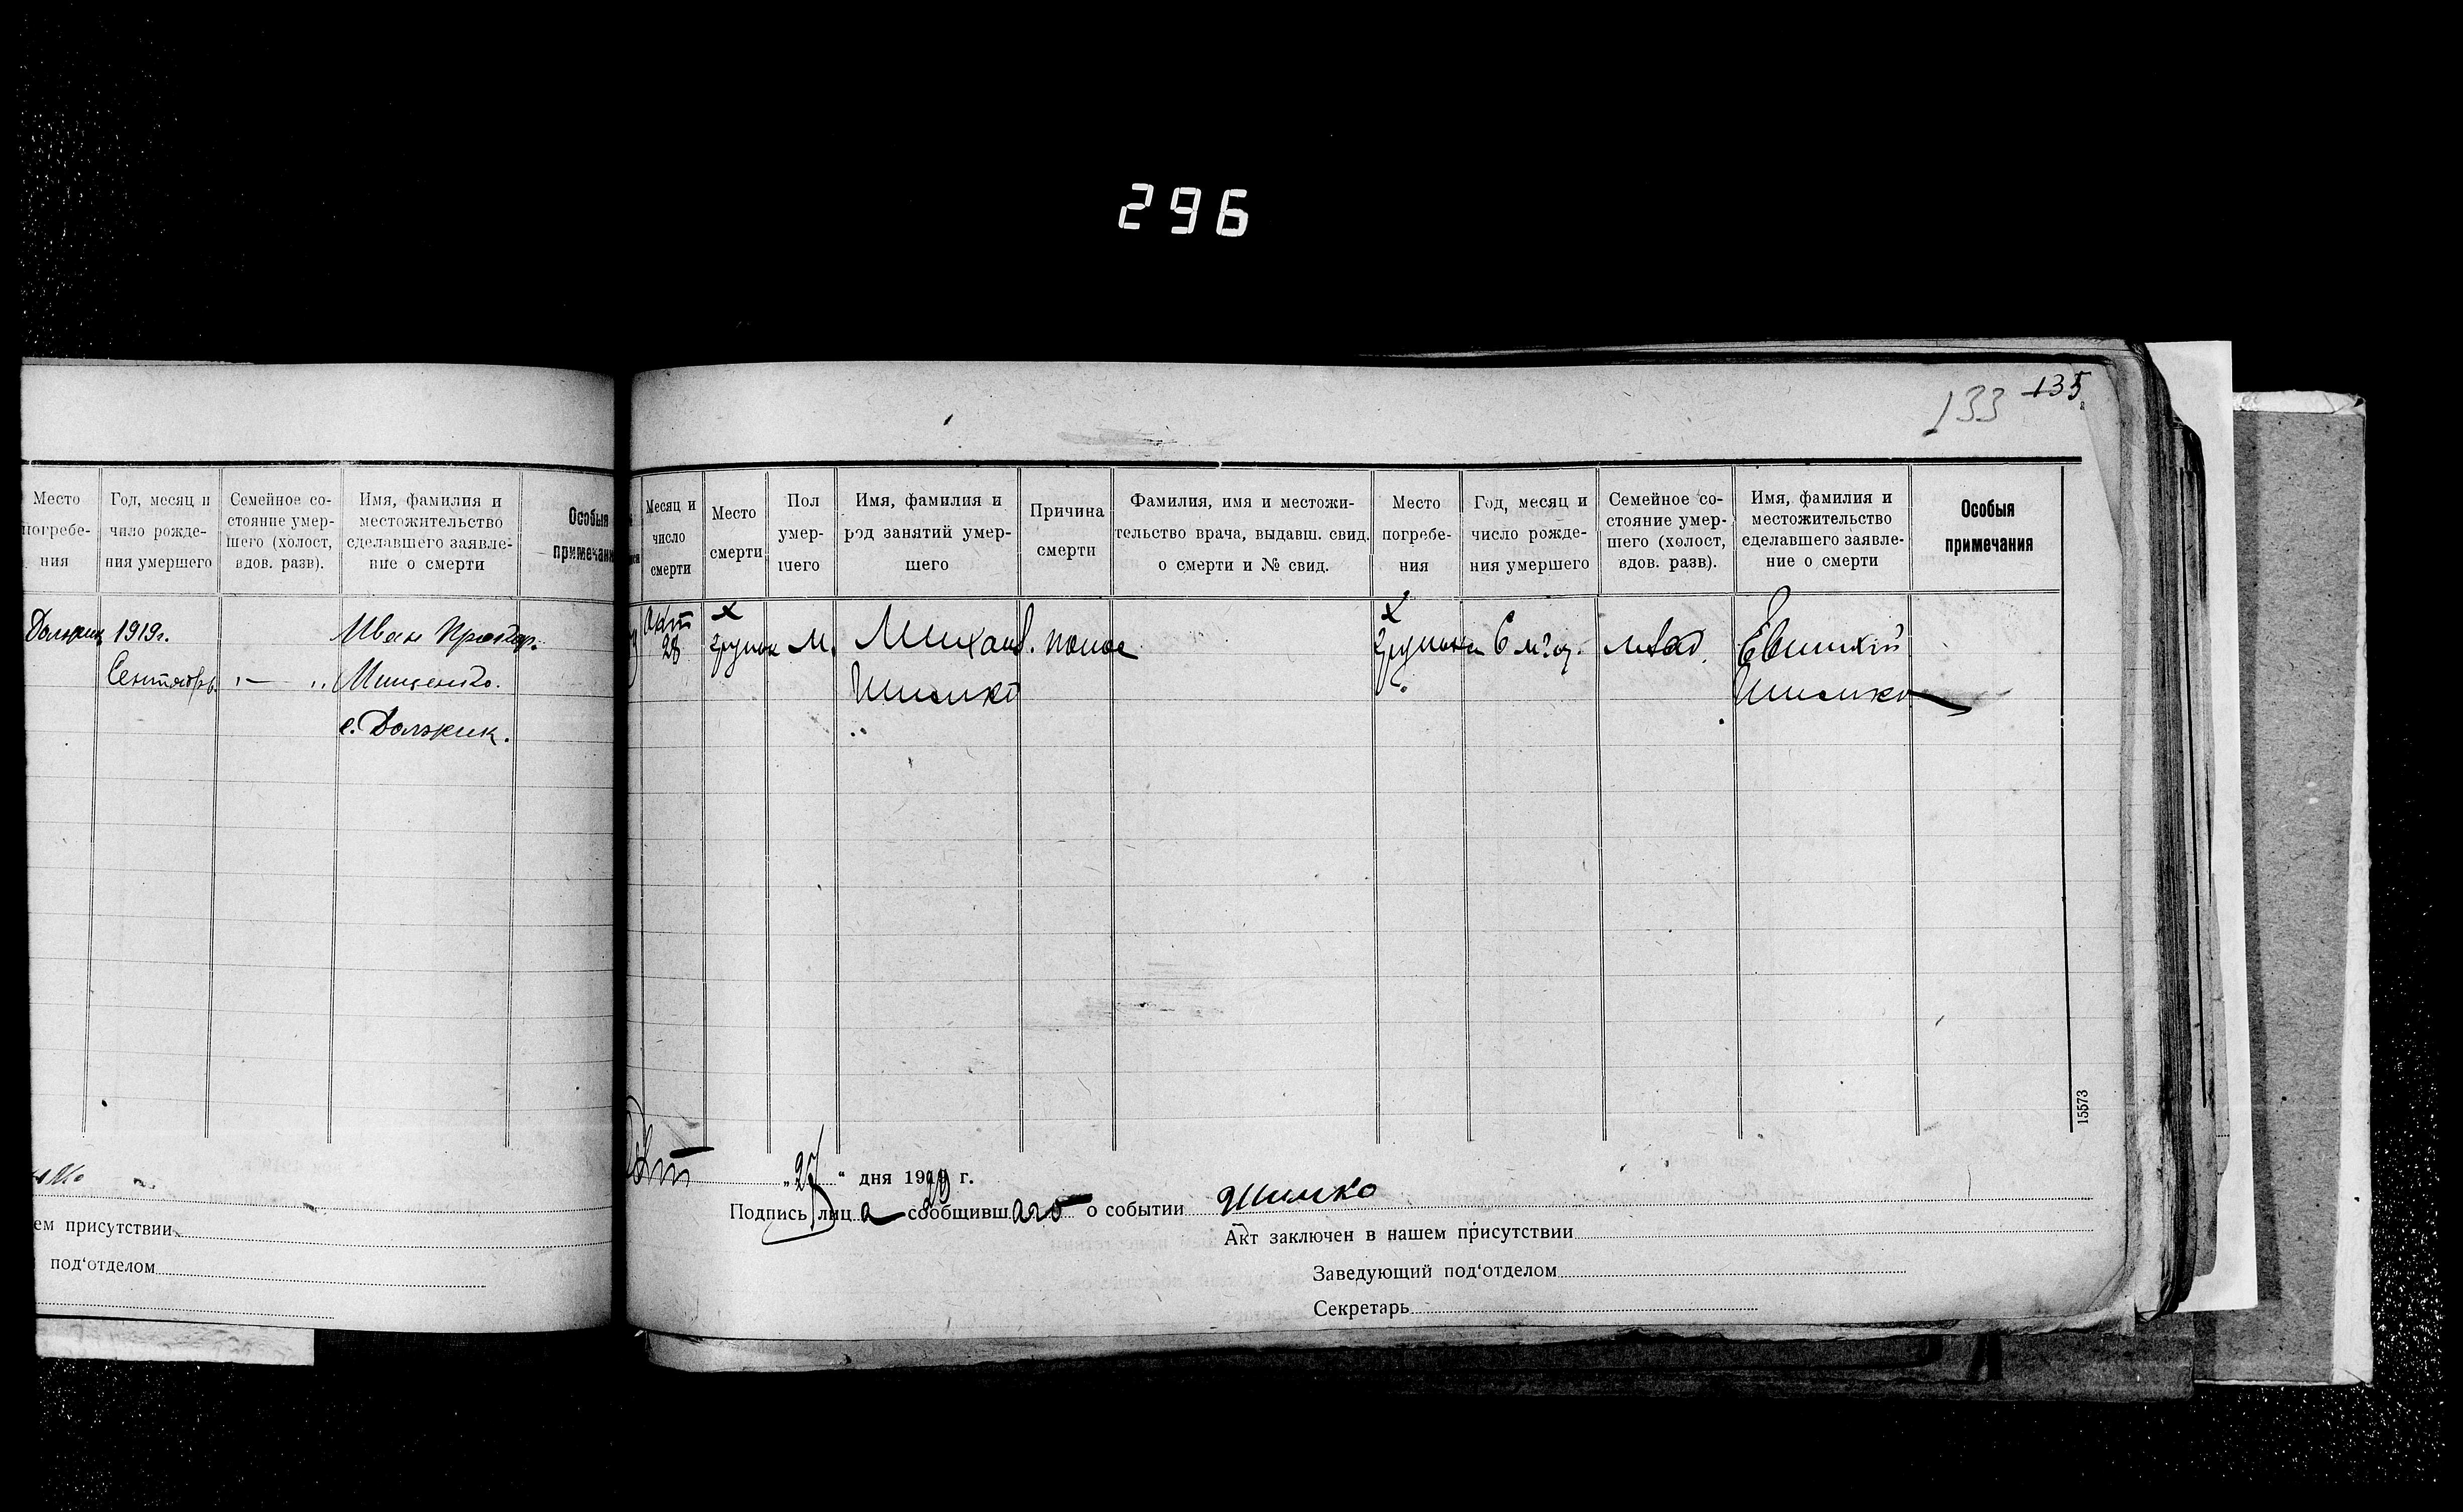 296
133 135
Место погребе-ния
Год, месяц и число рожде-ния умершего
Семейное со-стояние умер-шего (холост, вдов. разв).
Имя, фамилия и местожительство сделавшего заявле-ние о смерти
Особыя примечани
Должик 1919г. Иван Прохор.
Сентябрь „ — „ Мищенко.
с. Должик.
ем присутствии
под'отделом
Месяц и число смерти
Место смерти
Пол умер-шего
Имя, фамилия и род занятий умер-шего
Причина смерти
Фамилия, имя и местожи-тельство врача, выдавш. свид. о смерти и № свид.
Место погребе-ния
Год, месяц и число рожде-ния умершего
Семейное со-стояние умер-шего (холост, вдов. разв).
Имя, фамилия и местожительство сделавшего заявле-ние о смерти
Особыя примечания
Окт х х
28 М. Михаил. понос 6 млад. Евтихий
Шимко Шимко
15573
Окт „27“ дня 1919 г.
Подпись лица сообщившаго о событии Шимко
Акт заключен в нашем присутствии
Заведующий под'отделом
Секретарь